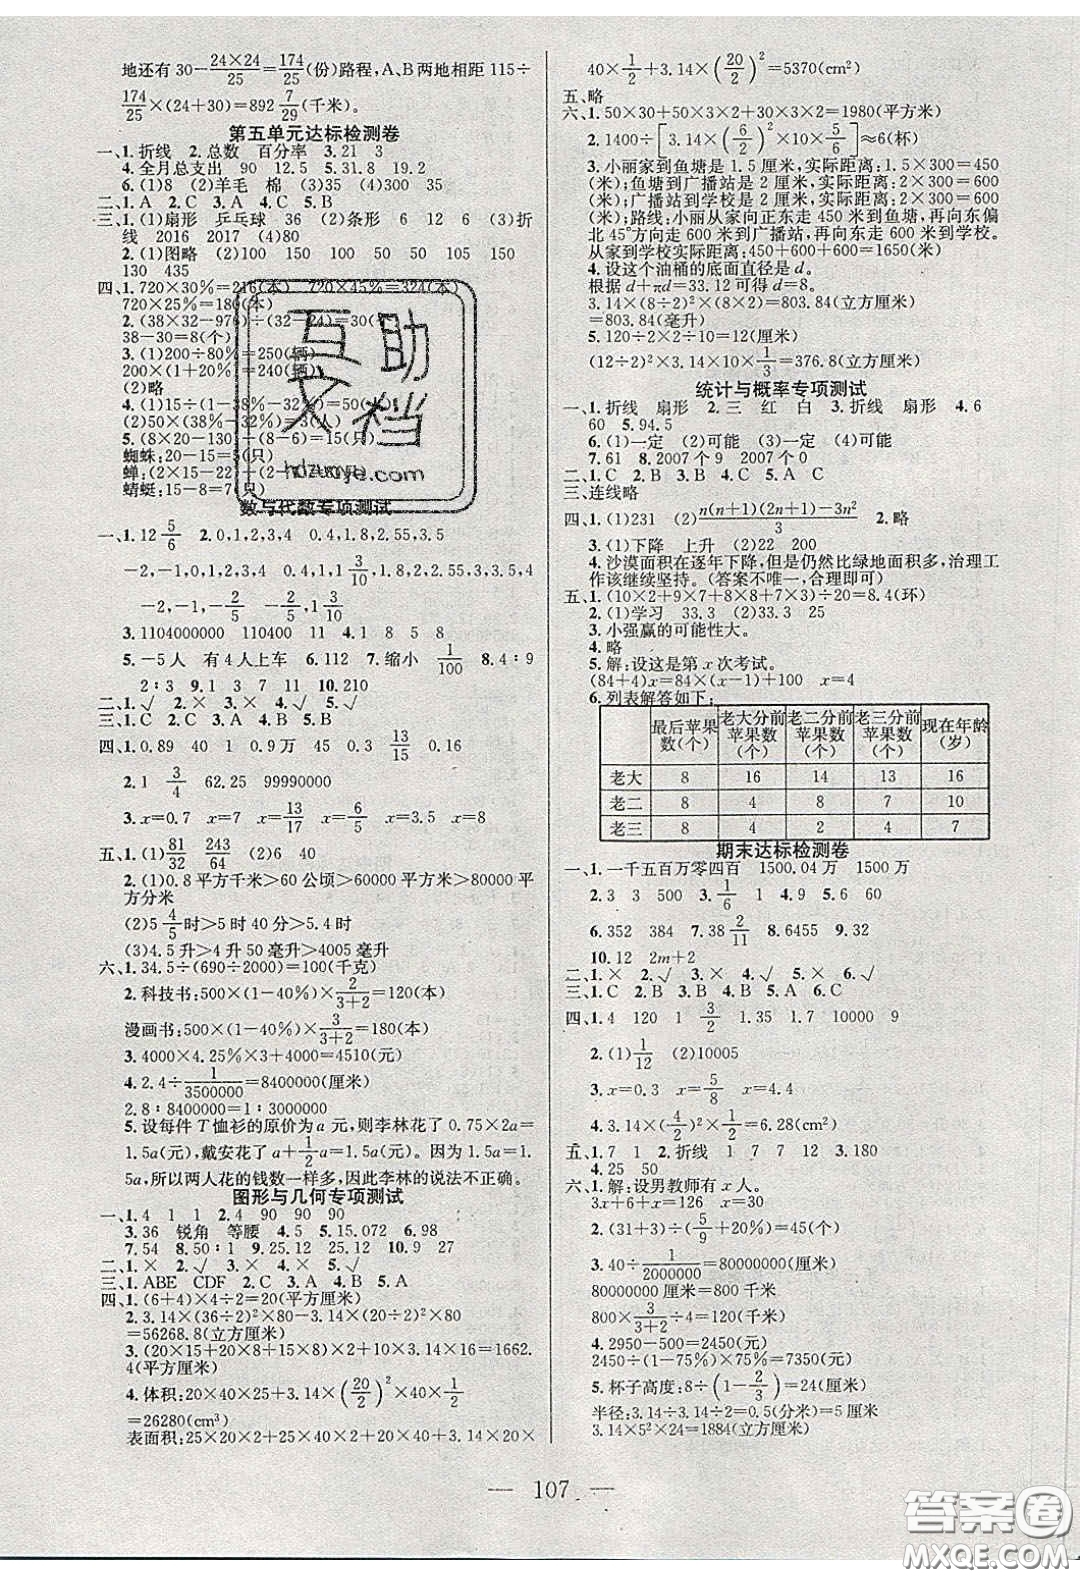 地还有30-24×24/25=174/25(份)路程,A、B两地相距115÷
174/25×(24+30)=892 7/29(千米)。
第五单元达标检测卷
一、1.折线 2.总数 百分率 3.21 3
4.全月总支出 90 12.5 5.31.8 19.2
6.(1)8 (2)羊毛 棉 (3)35 (4)300 35
二、1.A 2.C 3.A 4.C 5.B
三、1.(1)扇形 乒乓球 36 (2)条形 6 12 6 (3)折
线 2016 2017 (4)80
2.(1)图略 (2)100 150 100 50 150 50
130 435
四、1.720×30%=216(本) 720×45%=324(本)
720×25%=180(本)
2.(38×32-976)÷(32-24)=30(个)
38-30=8(个)
3.(1)200÷80%=250(辆)
200×(1+20%)=240(辆)
(2)略
4.(1)15÷(1-38%-32%)=50(人)
(2)50×(38%-32%)=3(人)
5.(8×20-130)÷(8-6)=15(只)
蜘蛛:20-15=5(只)
蝉:(2×15-22)÷(2-1)=8(只)
蜻蜓:15-8=7(只)
数与代数专项测试
一、1.12 5/6 2.0,1,2,3,4 0.4,1.8,2.55,3.5
-2,-1,0,1,2,3,4 0.4,1,3/10,1.8,2,2.55,3,3.5,4
-2,-1,-2/5 -2/5 1 3/10
3.1104000000 110400 11 4.1 8 5 8
5.-5人 有4人上车 6.112 7.缩小 1/100 8.4∶9
2∶3 9.1 3 7 11 10.210
二、1.√ 2.× 3.× 4.√ 5.√
三、1.C 2.C 3.A 4.B 5.C
四、1.0.89 40 1 0.9万 45 0.3 13/15 0.16
2.1 3/4 62.25 99990000
3.x=0.7 x=7 x=13/17 x=6/5 x=3.4 x=8
五、1.(1)81/32 243/64 (2)6 40
2.(1)0.8平方千米>60公顷>60000平方米>80000平
方分米
(2)5 4/5时>5时40分>5.4时
(3)4.5升>4升50毫升>4005毫升
六、1.34.5÷(690÷2000)=100(千克)
2.科技书:500×(1-40%)×2/(3+2)=120(本)
漫画书:500×(1-40%)×3/(3+2)=180(本)
3.4000×4.25%×3+4000=4510(元)
4.2.4÷1/3500000=8400000(厘米)
2.8∶8400000=1∶3000000
5.设每件T恤衫的原价为a元,则李林花了0.75×2a=
1.5a(元),戴安花了a+1/2a=1.5a(元)。因为1.5a=1.
5a,所以两人花的钱数一样多,因此李林的说法不正确。
图形与几何专项测试
一、1.4 1 1 2.4 90 90 90
3.36 锐角 等腰 4.5 5.15.072 6.98
7.54 8.50∶1 9.25.12 25.12 10.9 27
二、1.× 2.√ 3.× 4.√ 5.√
三、1.ABE CDF 2.C 3.A 4.B 5.A
四、1.(6+4)×4÷2=20(平方厘米)
2.3.14×(36÷2)²×80-3.14×(12÷2)²×80
=56268.8(立方厘米)
3.(20×15+20×8+15×8)×2+10×15×4=1662.
4(平方厘米)
4.体积:20×40×25+3.14×(20/2)²×40×1/2
=26280(cm³)
表面积:25×20×2+25×40×2+40×20+3.14×20×
40×1/2+3.14×(20/2)²=5370(cm²)
五、略
六、1.50×30+50×3×2+30×3×2=1980(平方米)
2.1400÷[3.14×(6/2)²×10×5/6]≈6(杯)
3.小丽家到鱼塘是1.5厘米,实际距离:1.5×300=450
(米);鱼塘到广播站是2厘米,实际距离:2×300=600
(米);广播站到学校是2厘米,实际距离:2×300=600
(米);路线:小丽从家向正东走450米到鱼塘,再向东偏
北45°方向走600米到广播站,再向正东走600米到学校。
从家到学校实际距离:450+600+600=1650(米)
4.设这个油桶的底面直径是d。
根据d+πd=33.12可得d=8。
3.14×(8÷2)²×(8×2)=803.84(立方厘米)
=803.84(毫升)
5.120÷2×2÷10=12(厘米)
(12÷2)²×3.14×10×1/3=376.8(立方厘米)
统计与概率专项测试
一、1.折线 扇形 2.三 红 白 3.折线 扇形 4.6
60 5.94.5
6.(1)一定 (2)可能 (3)一定 (4)可能
7.61 8.2007个9 2007个0
二、1.C 2.B 3.B 4.C 5.A
三、连线略
四、1.(1)231 (2)n(n+1)(2n+1)-3n²/3 2.略
3.(1)下降 上升 (2)22 200
4.沙漠面积在逐年下降,但是仍然比绿地面积多,治理工
作该继续坚持。(答案不唯一,合理即可)
五、1.(10×2+9×7+8×8+7×3)÷20=8.4(环)
2.(1)学习 33.3 (2)33.3 25
3.小强赢的可能性大。
4.略
5.解:设这是第x次考试。
(84x)=84×(x-1)+100 x=4
6.列表解答如下:
最后苹果数(个) 老大分前苹果数(个) 老二分前苹果数(个) 老三分前苹果数(个) 现在年龄(岁)
老大 8 16 14 13 16
老二 8 4 8 7 10
老三 8 4 2 4 7
期末达标检测卷
一、1.一千五百万零四百 1500.04万 1500万
2.3 3 500 3.1/6 1 4.9 5.6 60
6.352 384 7.30 2/11 8.6455 9.32
10.12 2m+2
二、1.× 2.√ 3.× 4.√ 5.√
三、1.C 2.B 3.B 4.B 5.A 6.C
四、1.4 120 1 3/2 1.35 1.7 10000 9
2.(1)1/12 (2)10005
3.x=0.3 x=5/8 x=4.8
4.3.14×(4/2)²×1/2=6.28(cm²)
五、1.7 1 2.折线 1 7 7 12 3.180
4.25 50
六、1.解:设男教师有x人。
3x+6+x=36 x=10
2.(31+3)÷(5/9+20%)=45(个)
3.40÷1/2000000=80000000(厘米)
80000000厘米=800千米
800×3/(3+2)÷4=120(千米)
4.2950-500=2450(元)
2450÷(1-75%)×75%=7350(元)
5.杯子高度:8÷(1-2/3)=24(厘米)
半径:3.14÷3.14÷2=0.5(分米)=5厘米
3.14×5²×24=1884(立方厘米)
— 107 —
互助
文档
hdzuoye.com
答案圈
MXQE.COM